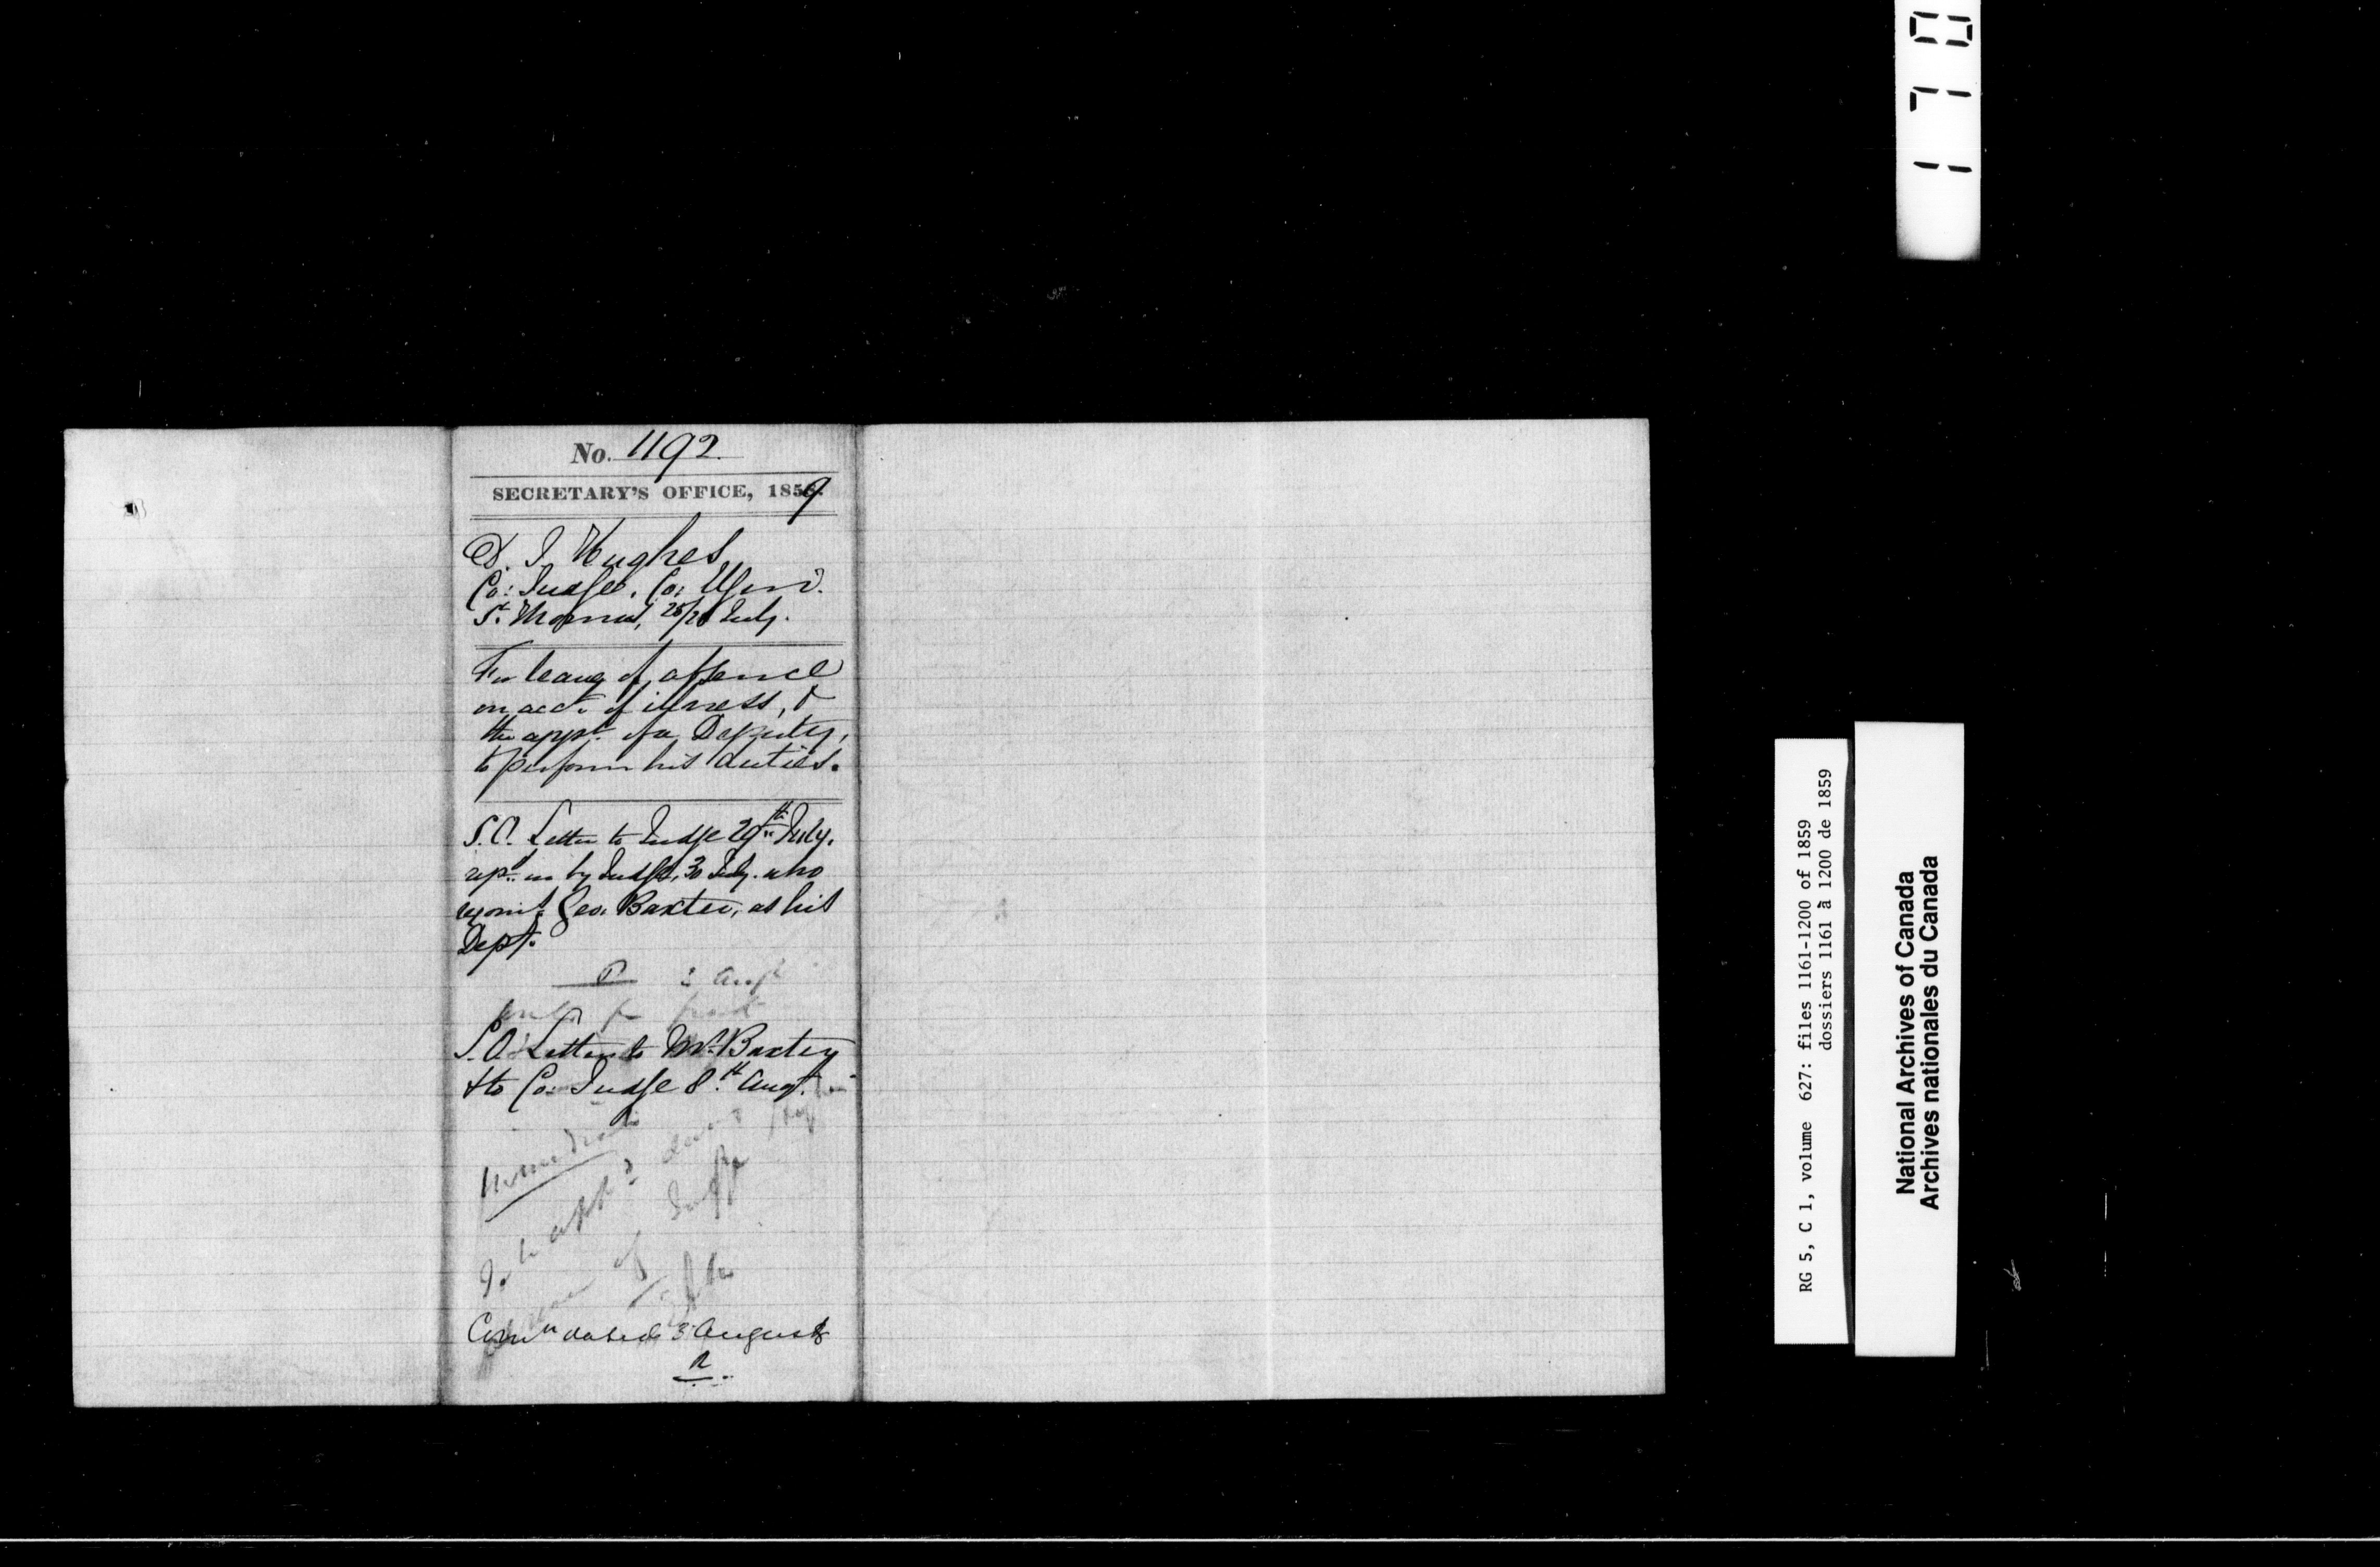 No. 1192.
SECRETARY'S OFFICE, 1859
D. J. Hughes
Co: Judge, Co: Elgin.
St. Thomas, 25/28 July.
For leave of absence
on acct. of illness, &
the appt. of a Deputy,
to perform his duties.
S.O. Letter to Judge 29th July.
by Judge, 30 July. who
Geo. Baxter, as his
Depy.
3 Augt
S.O. Letter to Mr. Baxter
& to Co: Judge 8th Augt.
Immediate
To be appd during
absence of Judge
Comn dated 3 August
R
170
RG 5, C 1, volume 627: files 1161-1200 of 1859
dossiers 1161 à 1200 de 1859
National Archives of Canada
Archives nationales du Canada